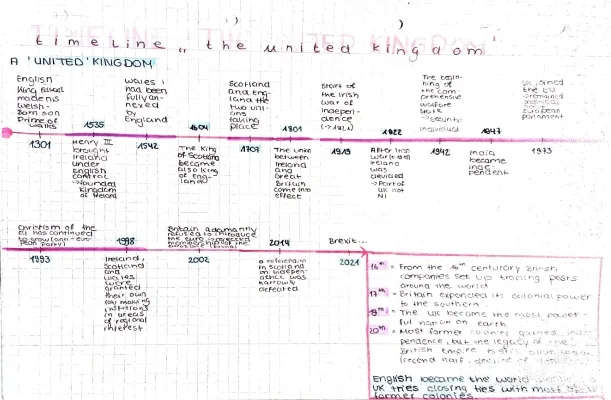 timeline " the united kingdom "
A 'UNITED' KINGDOM
English
king
made his
welsh-
born son
Prince of
Wales
1301
1535
Henry
brought
Ireland
under
English
control
→ founded
Kingdom
of Ireland
Wales
had been
fully an-
nexed
by
England
1542
1604
The King
of Scotland
became
also King
of Eng-
land
Scotland
and Eng-
land the
two uni-
ons
taking
place
1707
1801
The union
between
Ireland
and
Great
Britain
come into
effect
start of
the Irish
war of
indepen-
dence
(→ 1921)
1919
1922
After Irish
war
Ireland
was
devided
→ Part of
UK not
NI
The begin-
ning of
the com-
prehensive
welfare
state
→ security
individual
1942
1947
India
became
inde-
pendent
UK joined
the EU
european
parliament
1973
of the
EU has continued
to grow (anti-euro-
pean party)
1993
1998
Ireland,
Scotland
and
Wales
were
granted
their own
law making
institutions
in areas
of regional
interest
Britain adamantly
refused to introduce
the euro
membership of the
2002
2014
a referendum
in Scotland
on indepen-
dence was
narrowly
defeated
Brexit...
2021
16th = From the 16th century British
companies set up trading posts
around the world
17th = Britain expanded its colonial power
to the southern
19th = The UK became the most power-
ful nation on earth
20th = Most former colonies gained inde-
pendence, but the legacy of the
British Empire
(second half
English became the world
UK tries closing ties with most
former colonies.